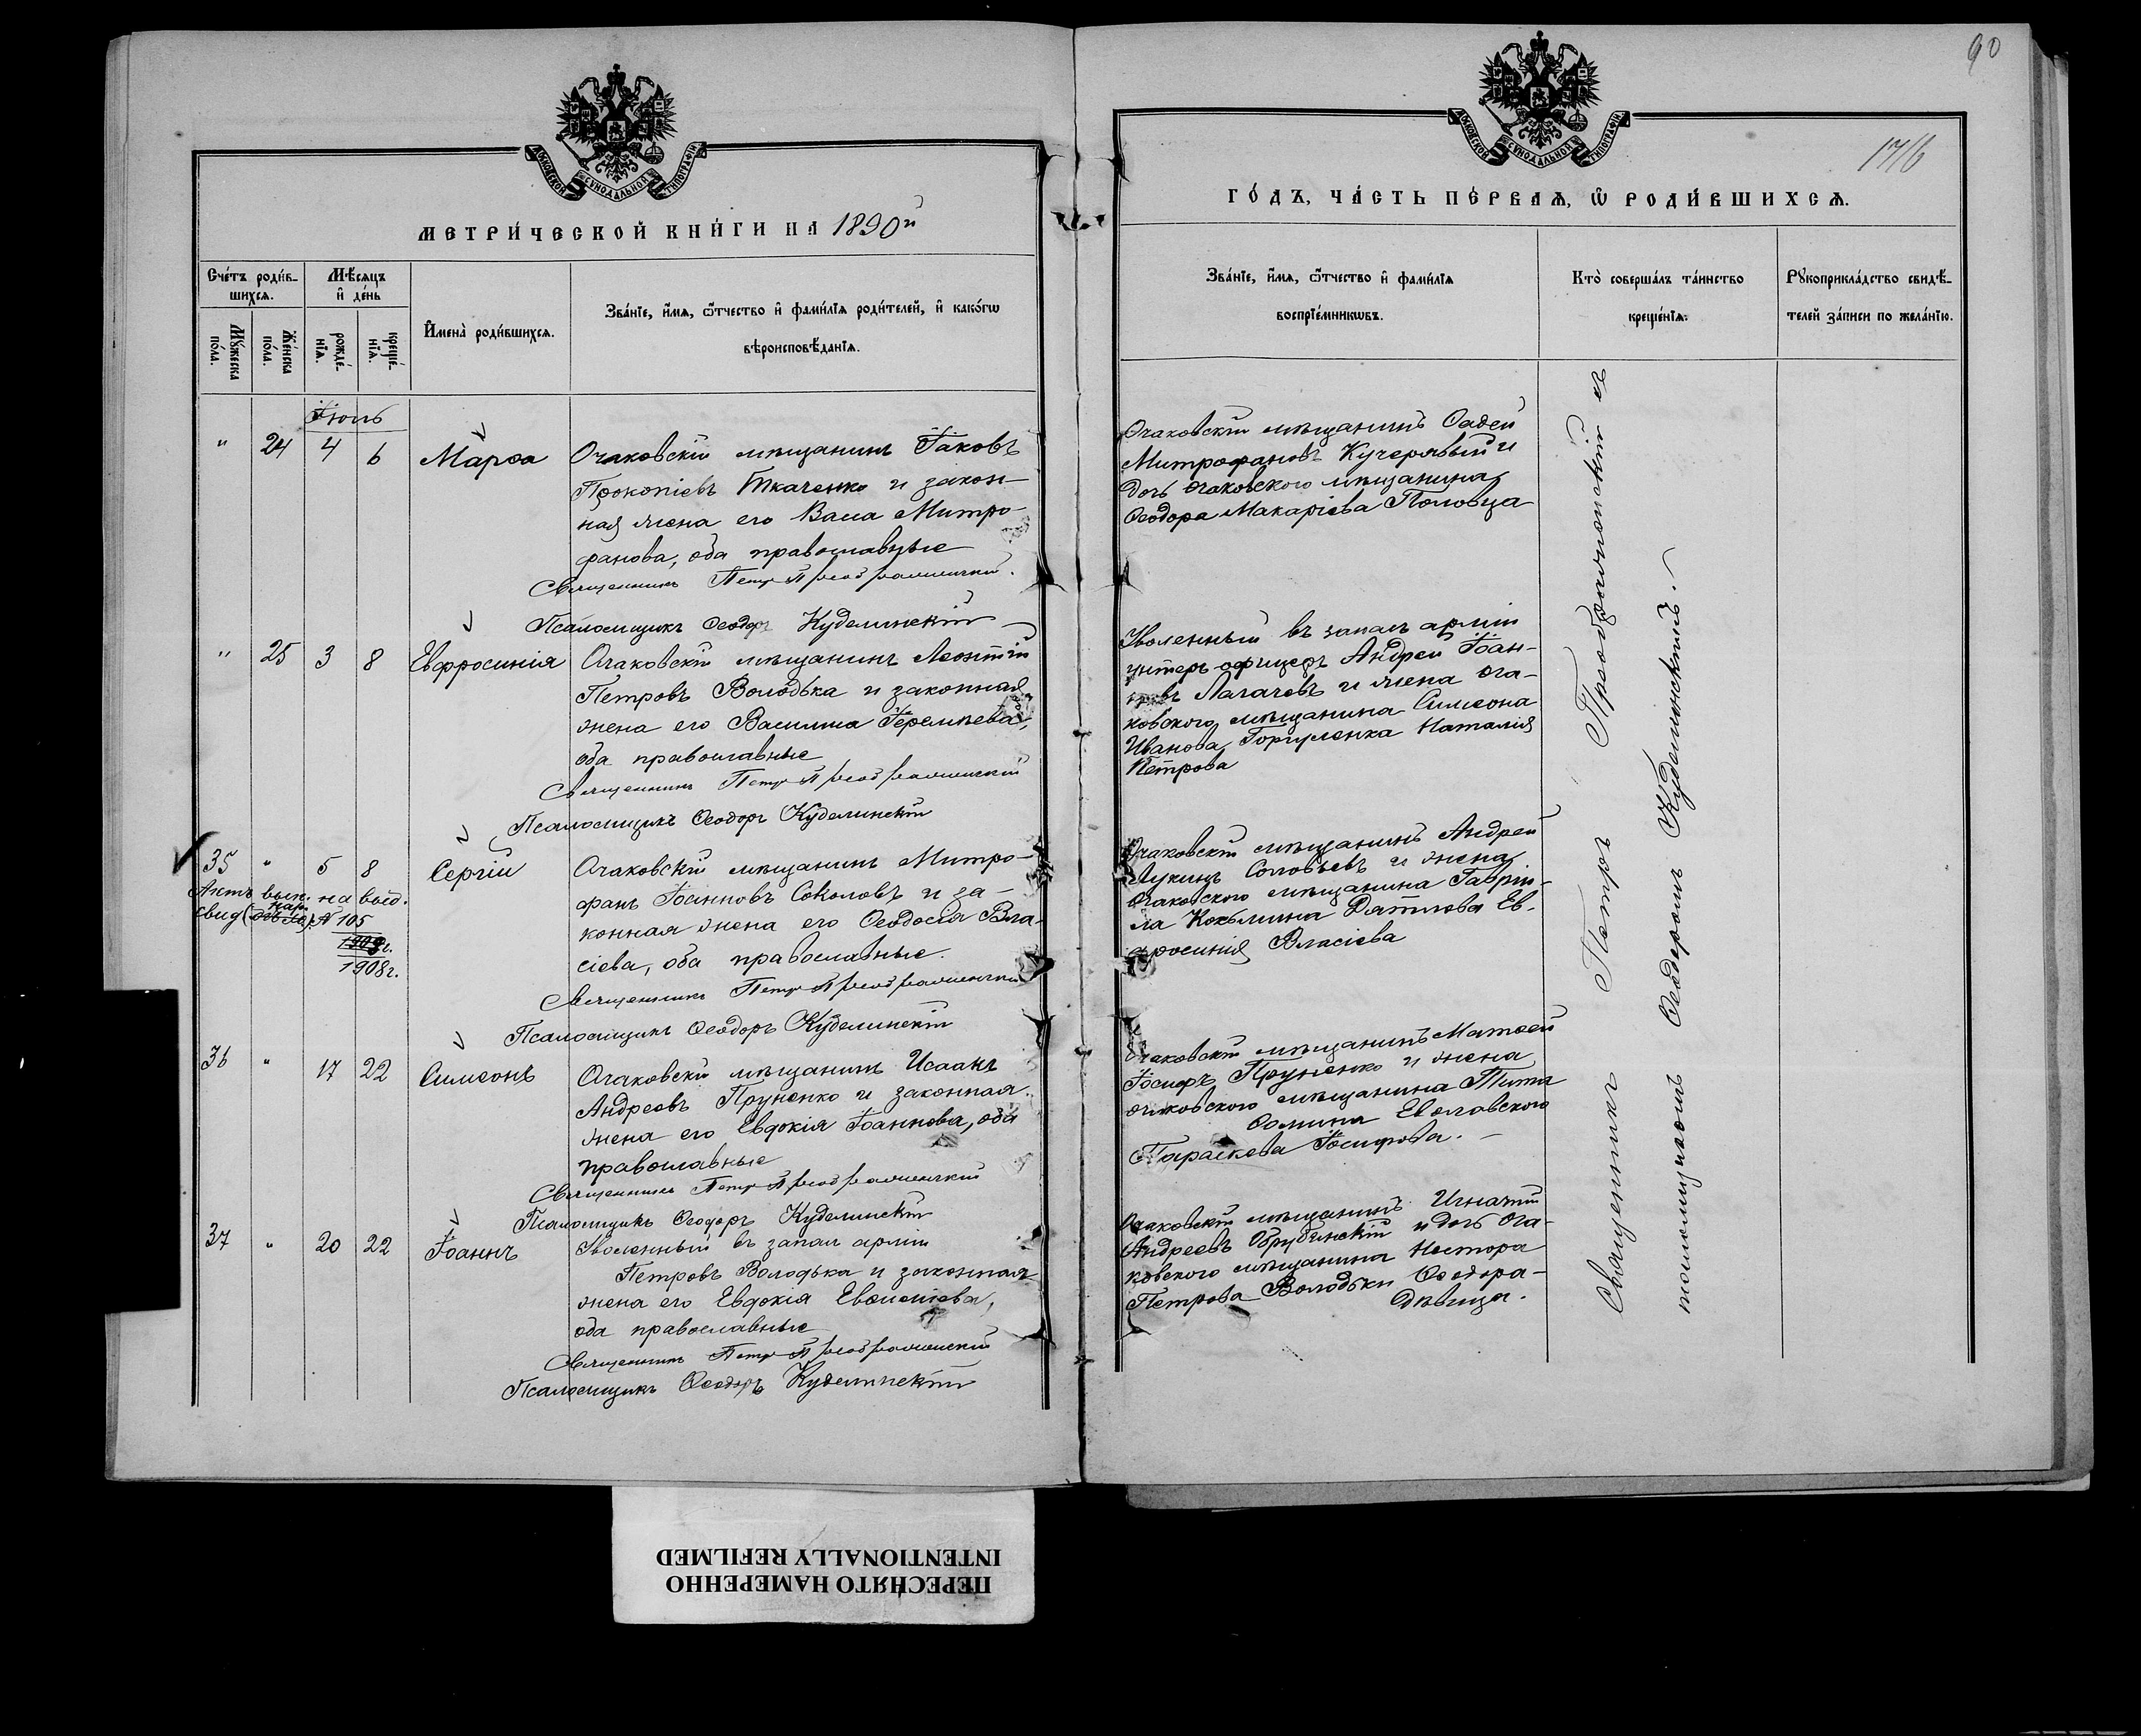 МОСКОВСКОЙ СѴНОДАЛЬНОЙ ТИПОГРАФІИ
МЕТРИ́ЧЕСКОЙ КНИ́ГИ НА 1890й
Сче́тъ роди́в-
шихсѧ.
Мѣ́сѧцъ
и҆ де́нь
Мꙋ́жеска
по́ла.
Же́нска
по́ла.
рожде́-
нїѧ.
креще́-
нїѧ.
И҆мена̀ роди́вшихсѧ.
Зва́нїе, и҆́мѧ, ѻ҆́тчество и҆ фами́лїѧ роди́телей, и҆ како́гѡ
вѣроисповѣ́данїѧ.
Іюль
" 24 4 6 Марѳа Очаковскій мѣщанинъ Іаковъ
Прокопіевъ Ткаченко и закон-
ная жена его Васса Митро-
фанова, оба православные
Священникъ Петръ Преображенскій.
Псаломщикъ Ѳеодоръ Куделинскій
" 25 3 8 Евфросинія Очаковскій мѣщанинъ Леонтій
Петровъ Володька и законная
жена его Василиса Іереміева,
оба православные
Священникъ Петръ Преображенскій
Псаломщикъ Ѳеодоръ Куделинскій
35 " 5 8 Сергій Очаковскій мѣщанинъ Митро-
фанъ Іоанновъ Соколовъ и за-
конная жена его Ѳеодосія Вла-
сіева, оба православные.
Актъ вып. на выд.
нар.
свид № 105
1908г.
Священникъ Петръ Преображенскій
Псаломщикъ Ѳеодоръ Куделинскій
36 " 17 22 Симеонъ Очаковскій мѣщанинъ Исаакъ
Андреевъ Пруненко и законная
жена его Евдокія Іоаннова, оба
православные
Священникъ Петръ Преображенскій
Псаломщикъ Ѳеодоръ Куделинскій
37 " 20 22 Іоаннъ Уволенный въ запас арміи
Петровъ Володька и законная
жена его Евдокія Евѳиміева,
оба православные
Священникъ Петръ Преображенскій
Псаломщикъ Ѳеодоръ Куделинскій
90
176
МОСКОВСКОЙ СѴНОДАЛЬНОЙ ТИПОГРАФІИ
ГО́ДЪ, ЧА́СТЬ ПЕ́РВАѦ, Ѡ҆ РОДИ́ВШИХСѦ.
Зва́нїе, и҆́мѧ, ѻ҆́тчество и҆ фами́лїѧ
воспрїе́мникѡвъ.
Кто̀ соверша́лъ та́инство
креще́нїѧ.
Рꙋкоприкла́дство свидѣ́-
телей за́писи по жела́нїю.
Очаковскій мѣщанинъ Фадей
Митрофановъ Кучерявый и
дочь очаковского мѣщанина
Ѳеодора Макаріева Половца
Уволенный въ запасъ арміи
унтеръ-офицеръ Андрей Іоан-
новъ Лагачевъ и жена оча-
ковского мѣщанина Симеона
Иванова Горгуленка Наталія
Петрова
Очаковскій мѣщанинъ Андрей
Лукинъ Соловьевъ и жена
очаковского мѣщанина Гаврі-
ла Козьмина Дятлова Ев-
фросинія Власіева
Очаковскій мѣщанинъ Матѳей
Іосифъ Пруненко и жена
очаковского мѣщанина Тита
Ѳомина
Параскева Іосифова.
Очаковскій мѣщанинъ Игнатій
Андреевъ и дочь оча-
ковского мѣщанина Нестора
Петрова Володьки Ѳеодора-
дѣвица.
Священникъ Петръ Преображенскій съ
псаломщикомъ Ѳеодоромъ Куделинскимъ.
ПЕРЕСНЯТО НАМЕРЕННО
INTENTIONALLY REFILMED